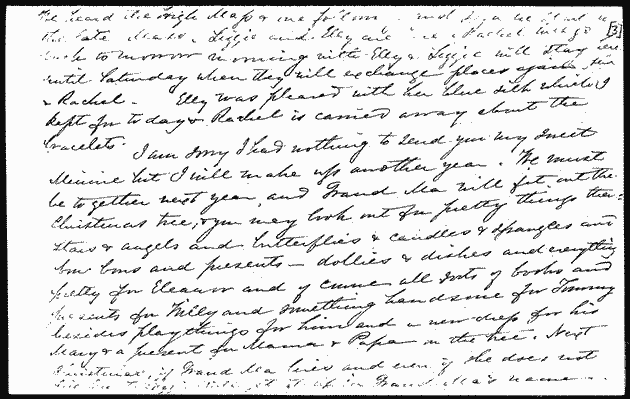 We heard the High Mass & one
[3]
the late Mass. Lizzie and Elly are here & Rachel
back to morrow morning with Elly & Lizzie will stay here
until Saturday when they will exchange places again
& Rachel. Elly was pleased with her blue silk which I
kept for to day & Rachel is carried away about the
bracelets.
I am sorry I had nothing to send you my sweet
Minnie but I will make up another year. We must
be together next year, and Grand Ma will fit out the
Christmas tree, & you may look out for pretty things then
stars & angels and butterflies & candles & spangles and
bon bons and presents - dollies & dishes and everything
pretty for Eleanor and of course all sorts of books and
presents for Willy and something handsome for Tommy
besides playthings for him and a new dress for his
Mary & a present for Mama & Papa on the tree. Next
Christmas, if Grand Ma lives and even if she does not
get it up in Grand Ma's name